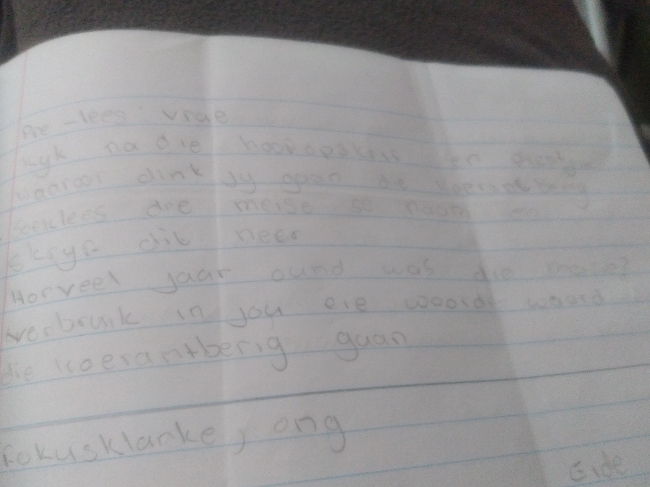 Pre-lees vrae
kyk na die hoofopskrif en
waaroor dink jy gaan die koerantberig
die meise se naam
skryf dit neer
Hoeveel jaar ound was die meise?
verbruik in jou eie woorde waaro
die koerantberig gaan
Fokusklanke, ong
Eide